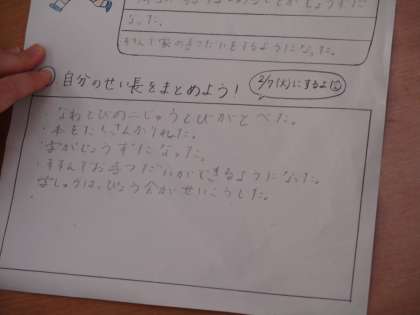 なった。
すすんで家の手つだいをするようになった。
自分のせい長をまとめよう！
2/7(火)にするよ
・なわとびの二じゅうとびがとべた。
・本をたくさんかりれた。
・字がじょうずになった。
・すすんでお手つだいができるようになった。
・学しゅうはっぴょう会がせいこうした。